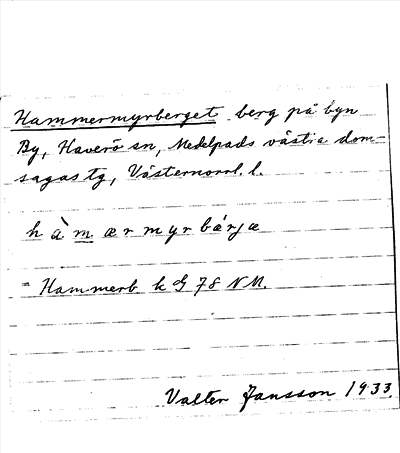 Hammermyrberget berg på byn
By, Haverö sn, Medelpads västra dom-
sagas tg, Västernorrl. l.
hàmærmyrbárjæ
= Hammerb. k G 78 NM.
Valter Jansson 1933.